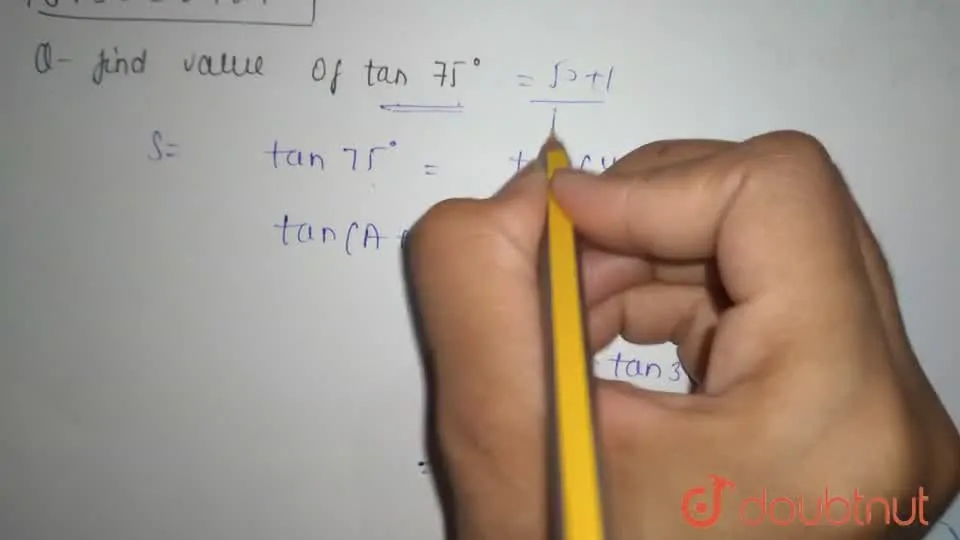 Q- find value of tan 75° = √3+1
S= tan 75° =
tan(A
tan 3
=
doubtnut